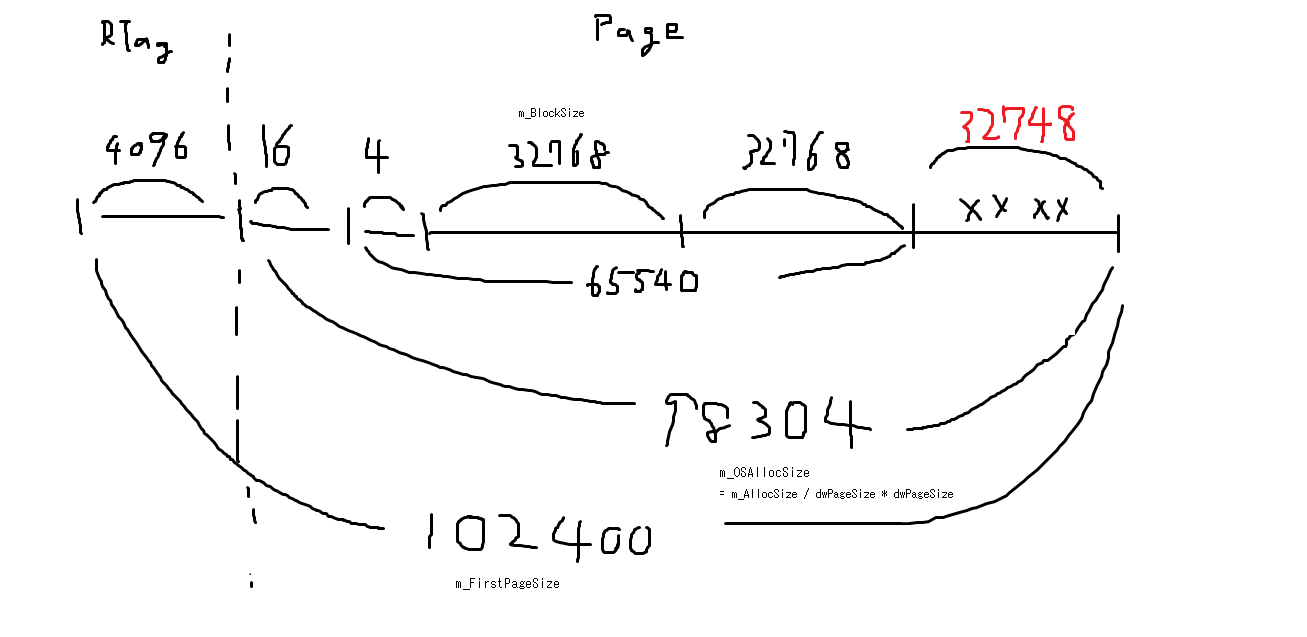 RTag
Page
m_BlockSize
4096
16
4
32768
32768
32748
xx xx
65540
98304
m_OSAllocSize
= m_AllocSize / dwPageSize * dwPageSize
102400
m_FirstPageSize